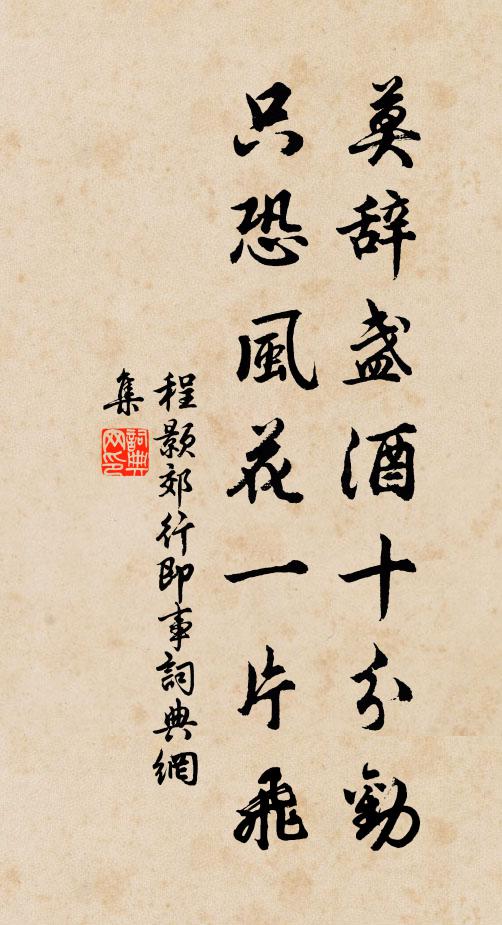 莫辞盏酒十分勸
只恐風花一片飛
程颢郊行即事詞典網
集
詞典
网印